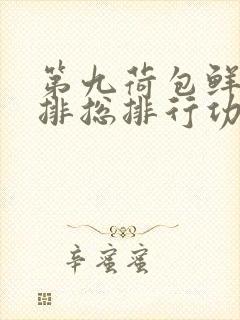 第九荷包鲜
排总排行功
辛蜜蜜